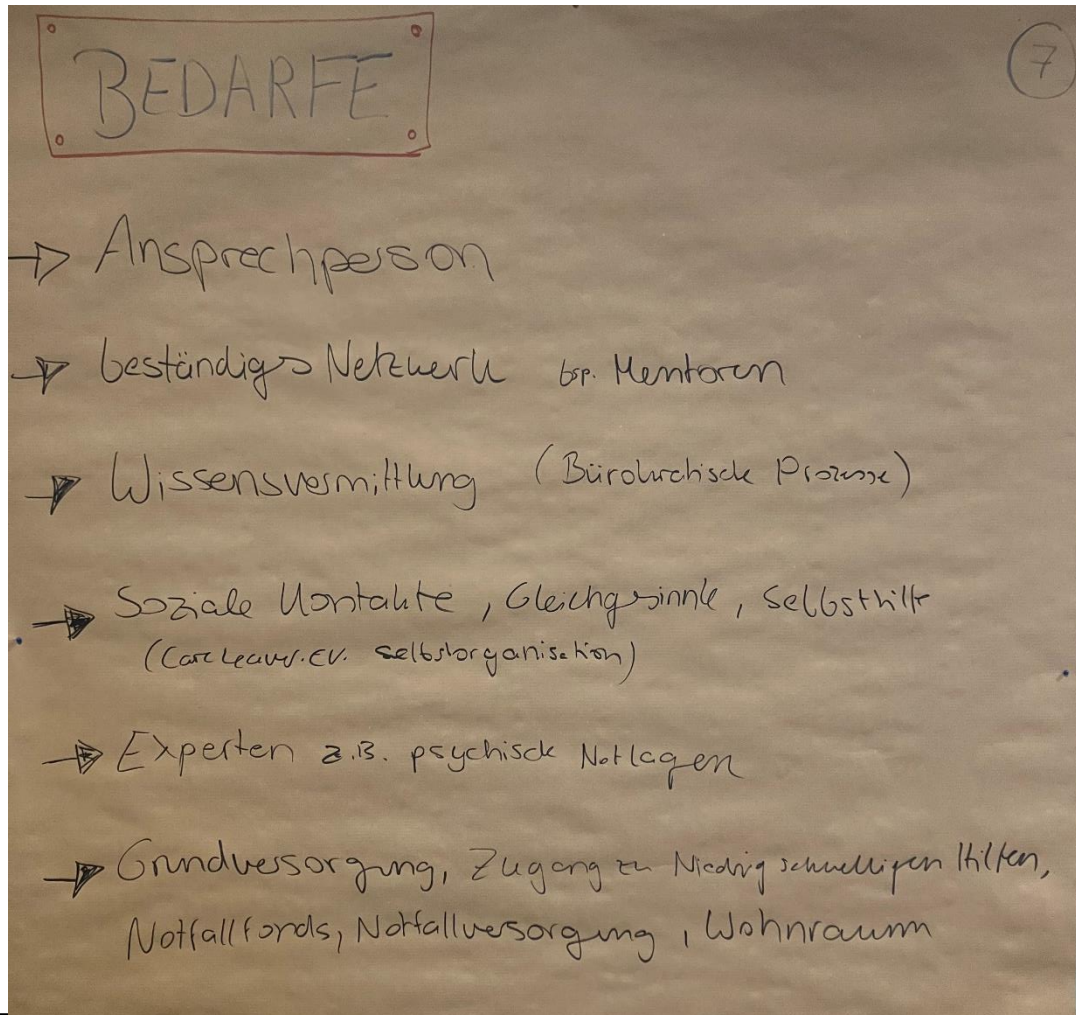 BEDARFE
7
Ansprechperson
beständiges Netzwerk bsp. Mentoren
Wissensvermittlung (Bürokratische Prozesse)
Soziale Kontakte, Gleichgesinnte, Selbsthilfe
(CareLeaver.e.V. Selbstorganisation)
Experten z.B. psychische Notlagen
Grundversorgung, Zugang zu Niedrig schwelligen Hilfen,
Notfallfonds, Notfallversorgung, Wohnraum